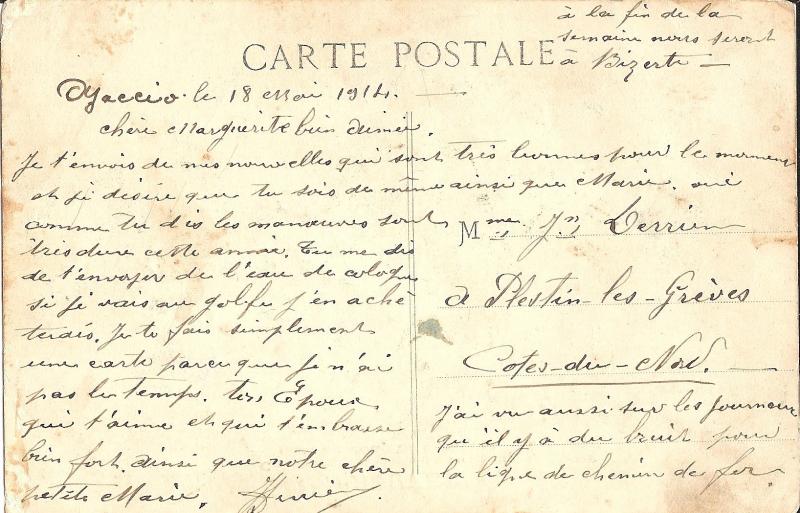 à la fin de la
semaine nous seront
à Bizerte —
CARTE POSTALE
Ajaccio. le 18 Mai 1914. —
Chère Marguerite bien aimée.
Je t'envois de mes nouvelles qui sont très bonnes pour le moment
et je désire que tu sois de même ainsi que Marie. oui
comme tu dis les manœuvres sont
très dure cette année. Tu me dis
de t'envoyer de l'eau de cologne
si je vais au golfe j'en achè
terais. Je te fais simplement
une carte parce que je n'ai
pas le temps. ton Epoux
qui t'aime et qui t'embrasse
bien fort. ainsi que notre chère
petite Marie.
Mme Jn Derrien
à Plestin-les-Grèves
Cotes-du-Nord.
J'ai vu aussi sur les Journeux
qu'il y à du bruit pour
la ligne de chemin de fer.